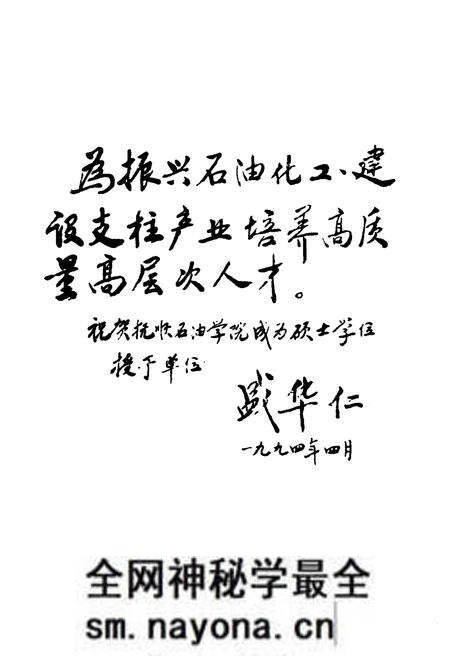 为振兴石油化工、建
设支柱产业培养高质
量高层次人才。
祝贺抚顺石油学院成为硕士学位
授予单位
盛华仁
一九九四年四月
全网神秘学最全
sm.nayona.cn